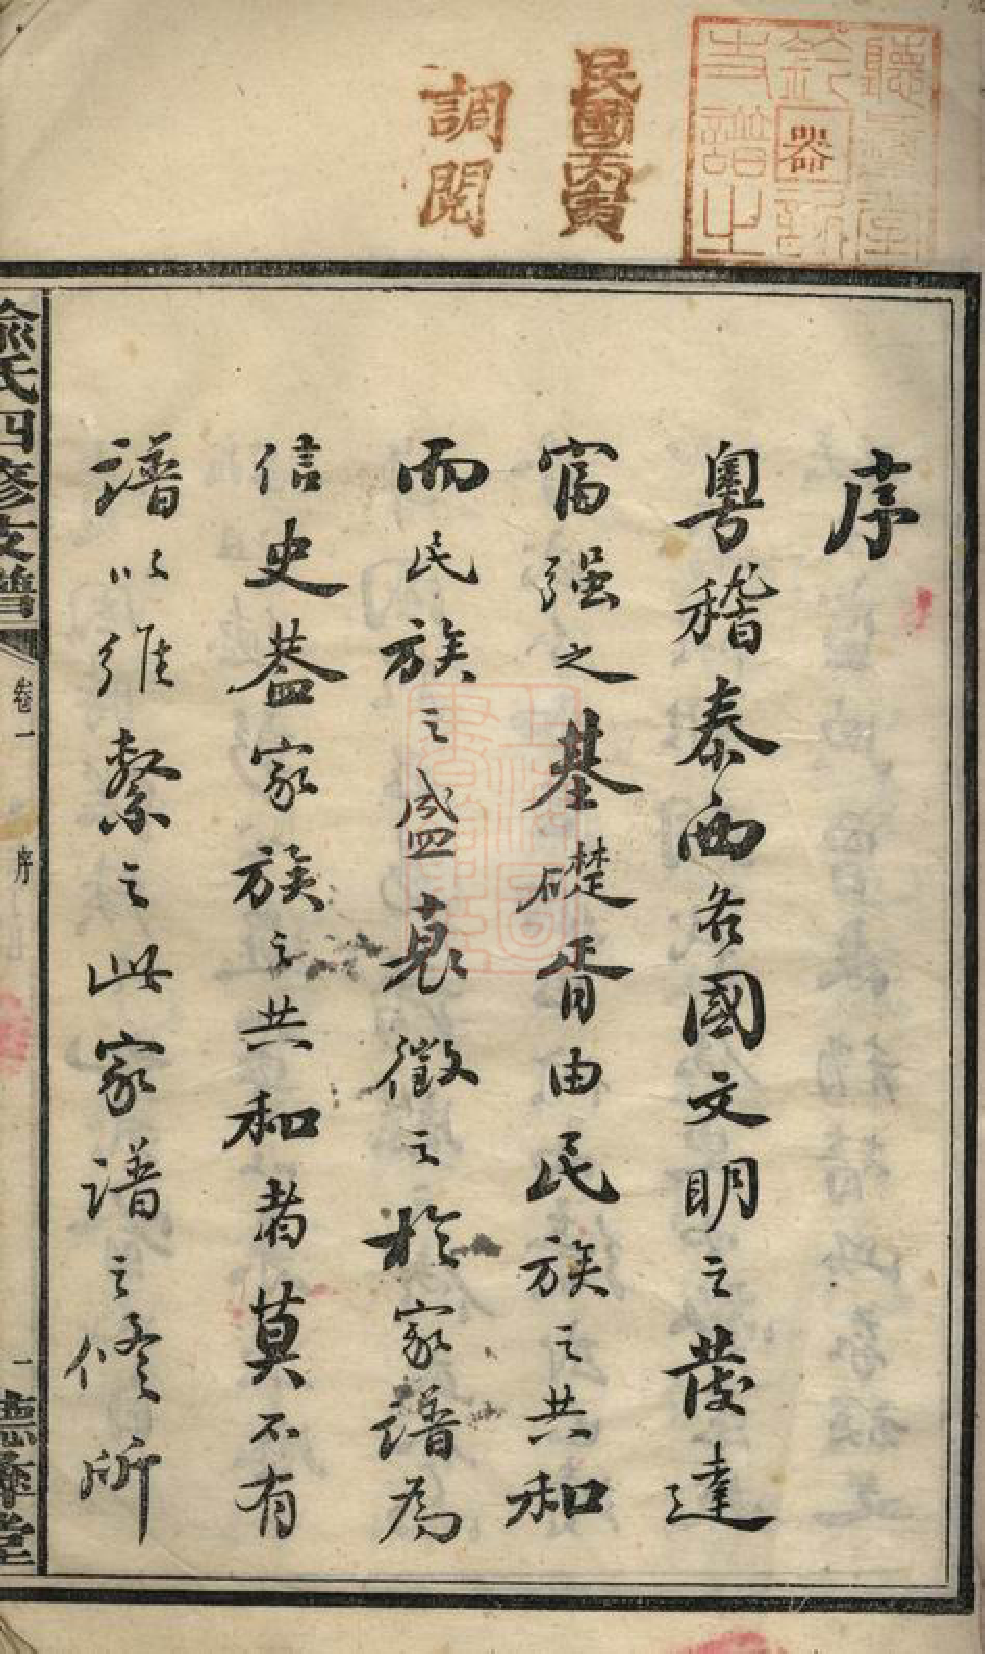 民國丙寅
調閱
序
粵稽泰西各國文明之發達
富强之基礎胥由民族之共和
而民族之盛衰徵之於家譜為
信史蓋家族之共和者莫不有
譜以維繫之此家譜之修所
俞氏四修支譜
卷一
序
一